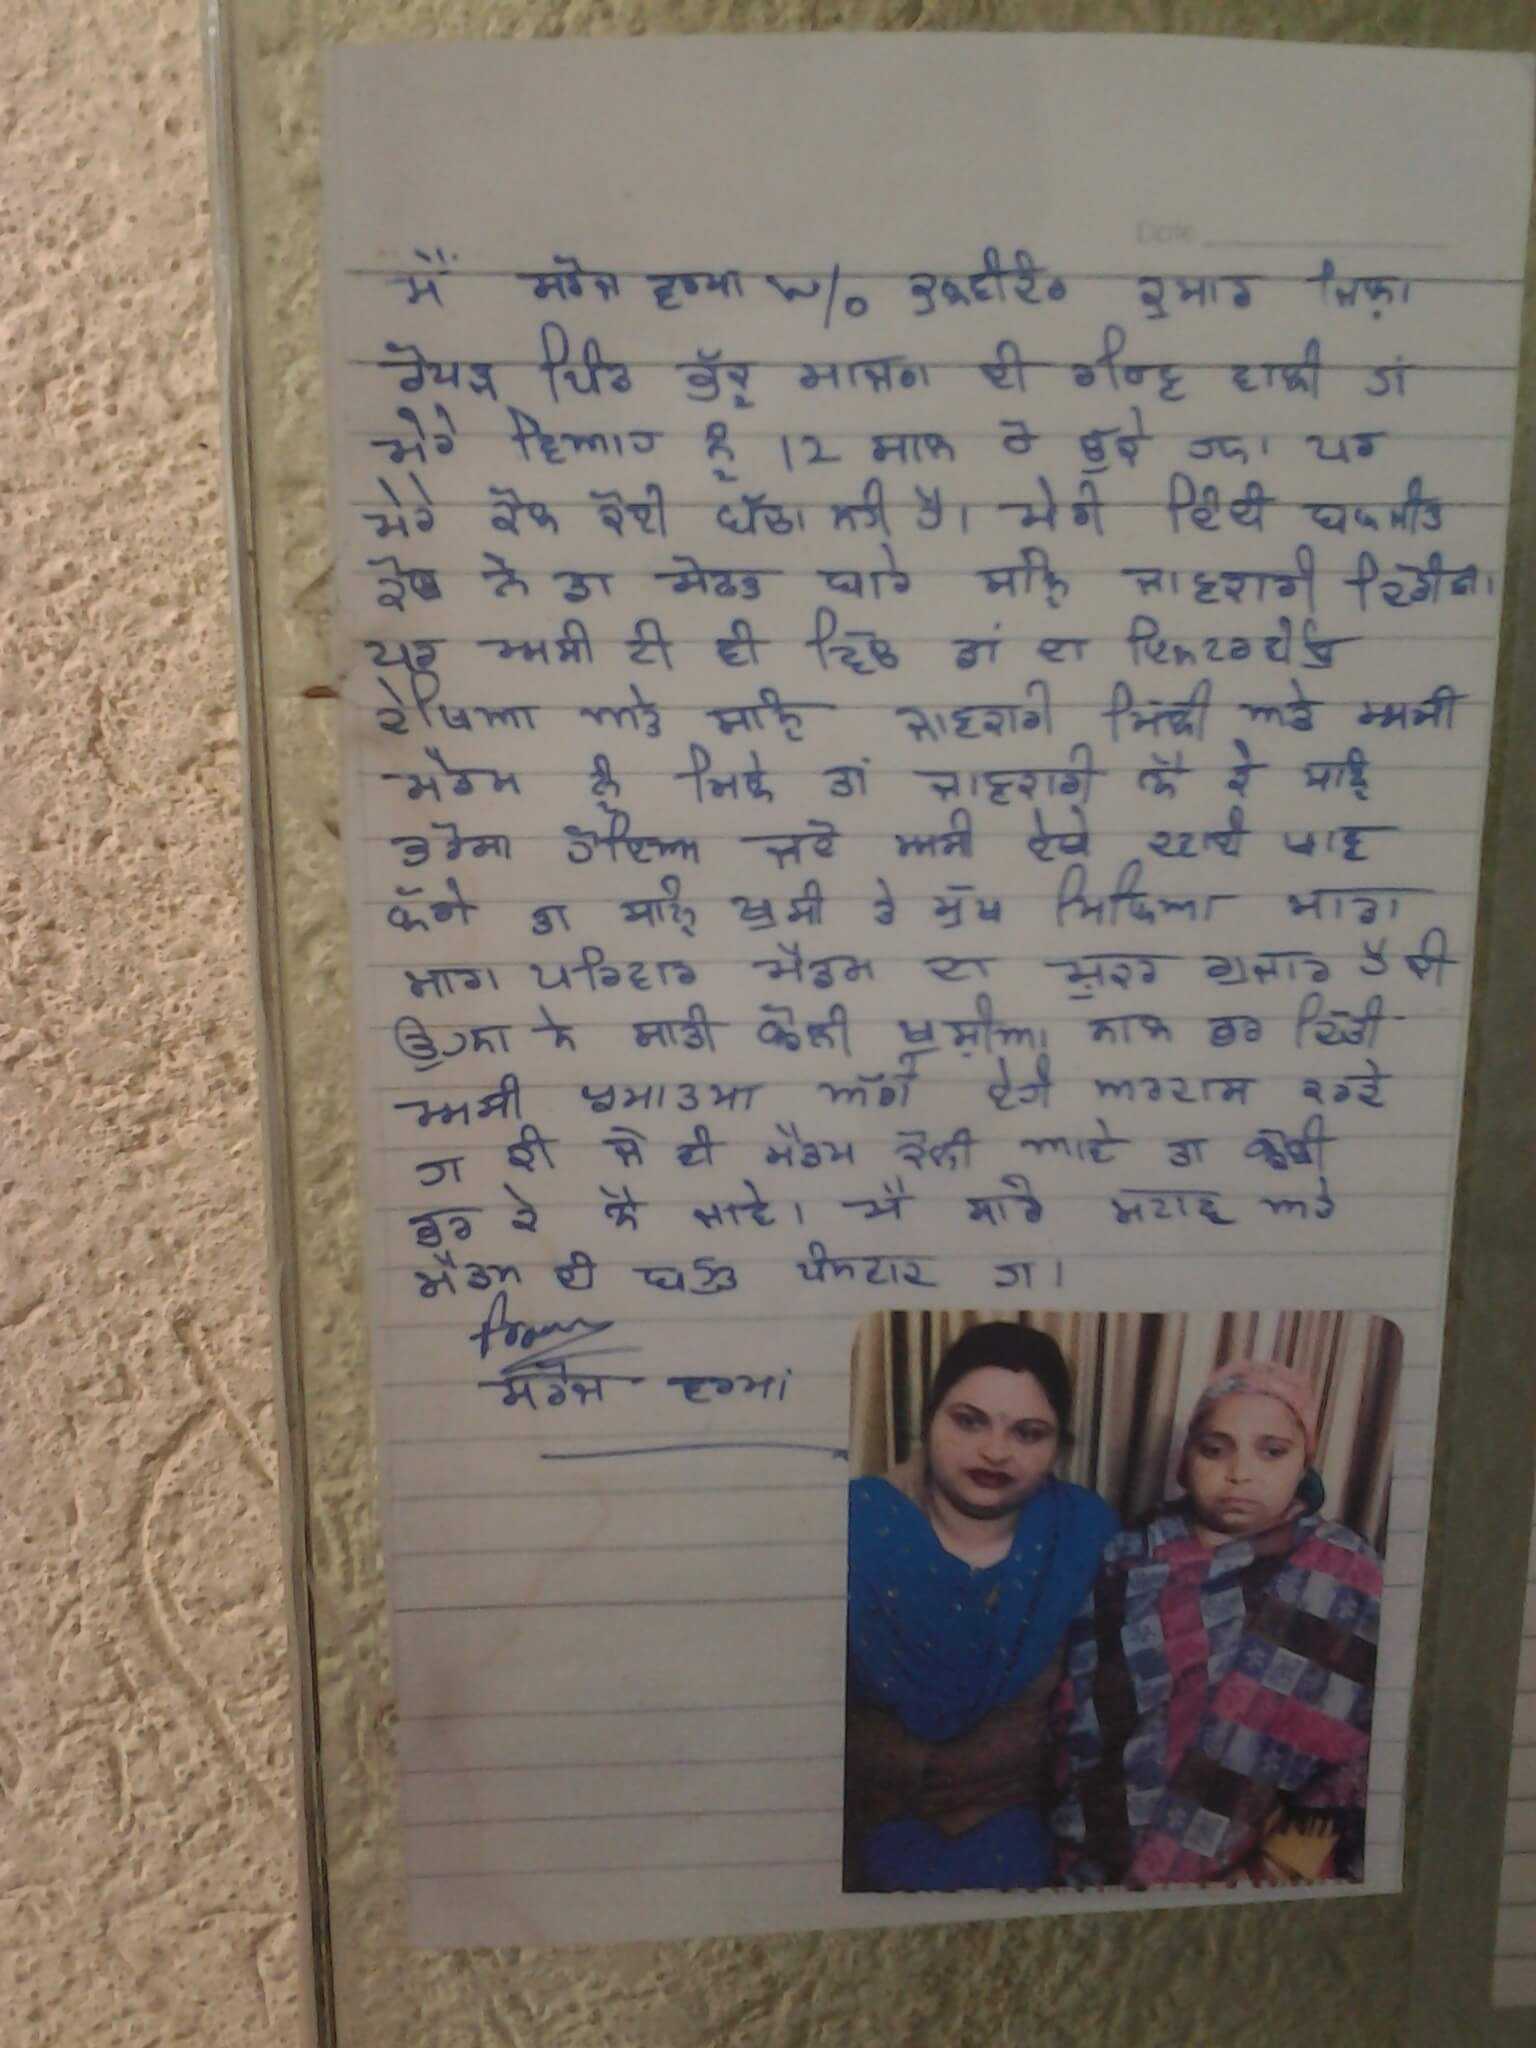 Date
ਮੈਂ ਸਰੋਜ ਵਰਮਾ w/o ਕੁਲਵਿੰਦਰ ਕੁਮਾਰ ਜਿਲਾ
ਰੋਪੜ ਪਿੰਡ ਮਾਜਰਾ ਦੀ ਰਹਿਣ ਵਾਲੀ ਹਾਂ
ਮੇਰੇ ਵਿਆਹ ਨੂੰ 12 ਸਾਲ ਹੋ ਚੁੱਕੇ ਹਨ। ਪਰ
ਮੇਰੇ ਕੋਲ ਕੋਈ ਬੱਚਾ ਨਹੀ ਹੈ। ਮੇਰੀ ਦੀਦੀ ਬਲਜੀਤ
ਕੌਰ ਨੇ ਤਾ ਮੈਡਮ ਬਾਰੇ ਸਾਨੂੰ ਜਾਣਕਾਰੀ ਦਿੱਤੀ।
ਪਰ ਅਸੀ ਟੀ ਵੀ ਵਿੱਚ ਤਾਂ ਦਾ ਇੰਟਰਵਿਊ
ਦੇਖਿਆ ਅਤੇ ਸਾਨੂੰ ਜਾਣਕਾਰੀ ਮਿਲੀ ਅਤੇ ਅਸੀ
ਮੈਡਮ ਨੂੰ ਮਿਲੇ ਤਾਂ ਜਾਣਕਾਰੀ ਲੈ ਕੇ ਸਾਨੂੰ
ਭਰੋਸਾ ਹੋਇਆ ਜਦੋ ਅਸੀ ਏਥੇ ਦਵਾਈ ਖਾਣ
ਲੱਗੇ ਤਾ ਸਾਨੂੰ ਖੁਸੀ ਤੇ ਸੁੱਖ ਮਿਲਿਆ ਸਾਡਾ
ਸਾਰਾ ਪਰਿਵਾਰ ਮੈਡਮ ਦਾ ਸ਼ੁਕਰ ਗੁਜਾਰ ਹੈ ਕੀ
ਉਹਨਾ ਨੇ ਸਾਡੀ ਝੋਲੀ ਖੁਸ਼ੀਆ ਨਾਲ ਭਰ ਦਿੱਤੀ
ਅਸੀ ਪ੍ਰਮਾਤਮਾ ਅੱਗੇ ਏਹੀ ਅਰਦਾਸ ਕਰਦੇ
ਹਾ ਕੀ ਜੋ ਵੀ ਮੈਡਮ ਕੋਲੀ ਆਵੇ ਤਾ ਝੋਲੀ
ਭਰ ਕੇ ਲੈ ਜਾਵੇ। ਮੈ ਸਾਰੇ ਸਟਾਫ ਅਤੇ
ਮੈਡਮ ਦੀ ਬਹੁਤ ਧੰਨਵਾਦ ਹਾ।
ਸਰੋਜ ਵਰਮਾਂ